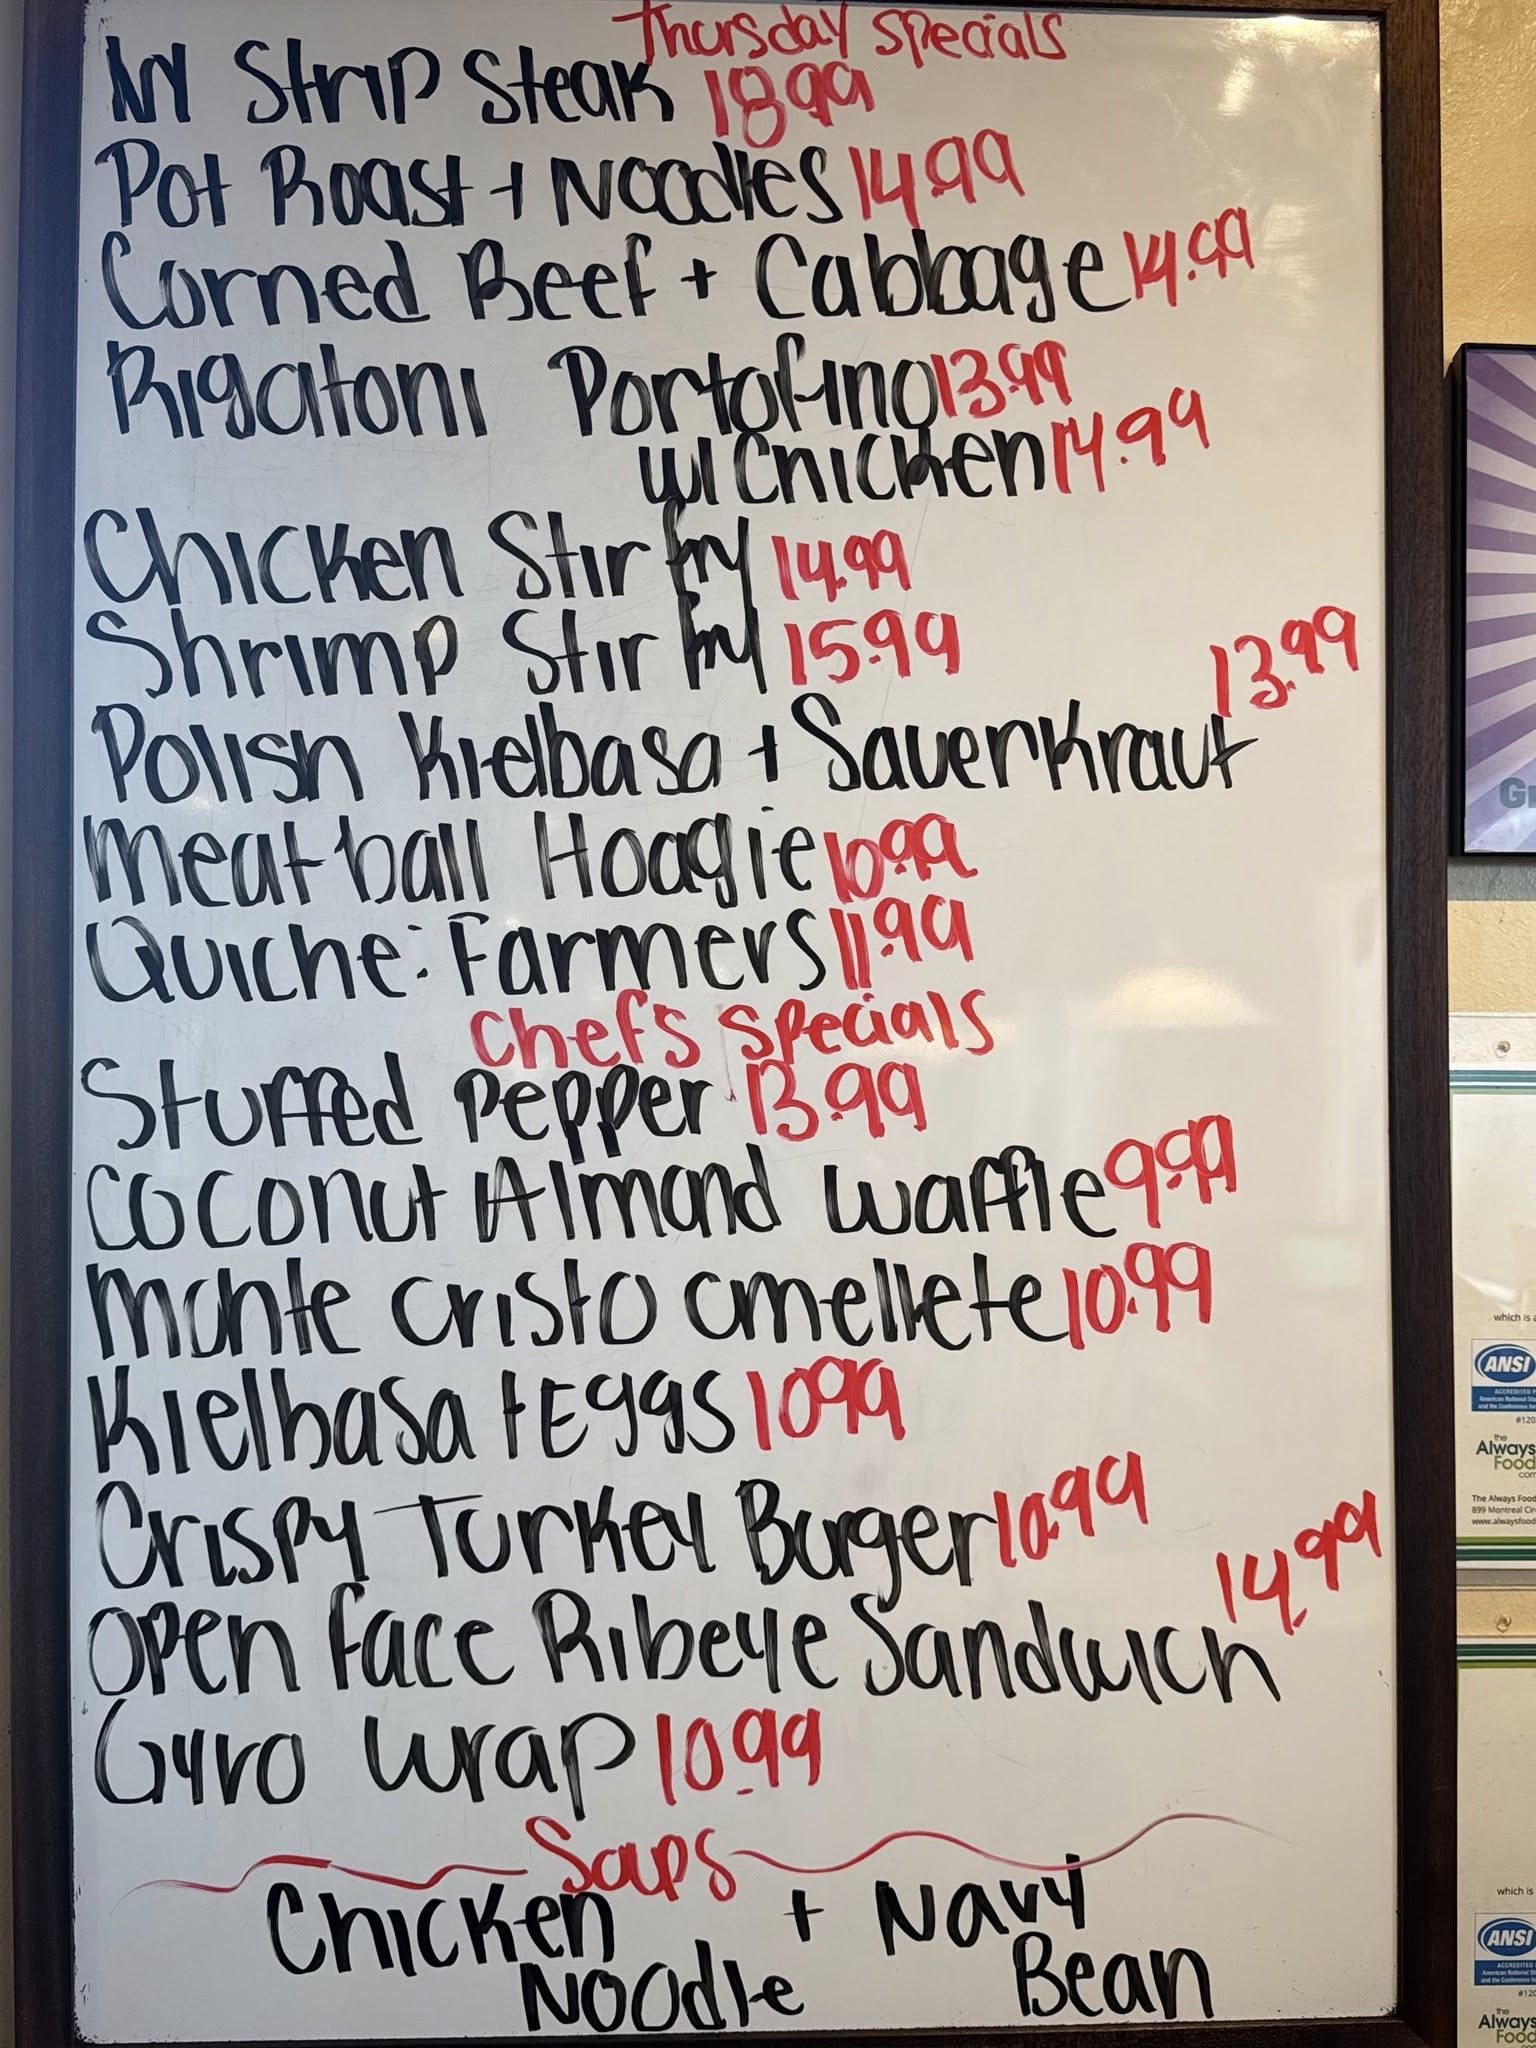 Thursday Specials
NY Strip Steak 18.99
Pot Roast + Noodles 14.99
Corned Beef + Cabbage 14.99
Rigatoni Portofino 13.99
w/ Chicken 14.99
Chicken Stir fry 14.99
Shrimp Stir fry 15.99
Polish Kielbasa + Sauerkraut 13.99
Meatball Hoagie 10.99
Quiche: Farmers 11.99
Chef's Specials
Stuffed Pepper 13.99
Coconut Almond Waffle 9.99
Monte Cristo Omellete 10.99
Kielbasa + Eggs 10.99
Crispy Turkey Burger 10.99
Open Face Ribeye Sandwich 14.99
Gyro Wrap 10.99
Soups
Chicken + Navy
Noodle Bean
which is
ANSI
#120
the
Always
Food
com
The Always Food
899 Montreal Circ
www.alwaysfood
which is
ANSI
#120
the
Always
Food